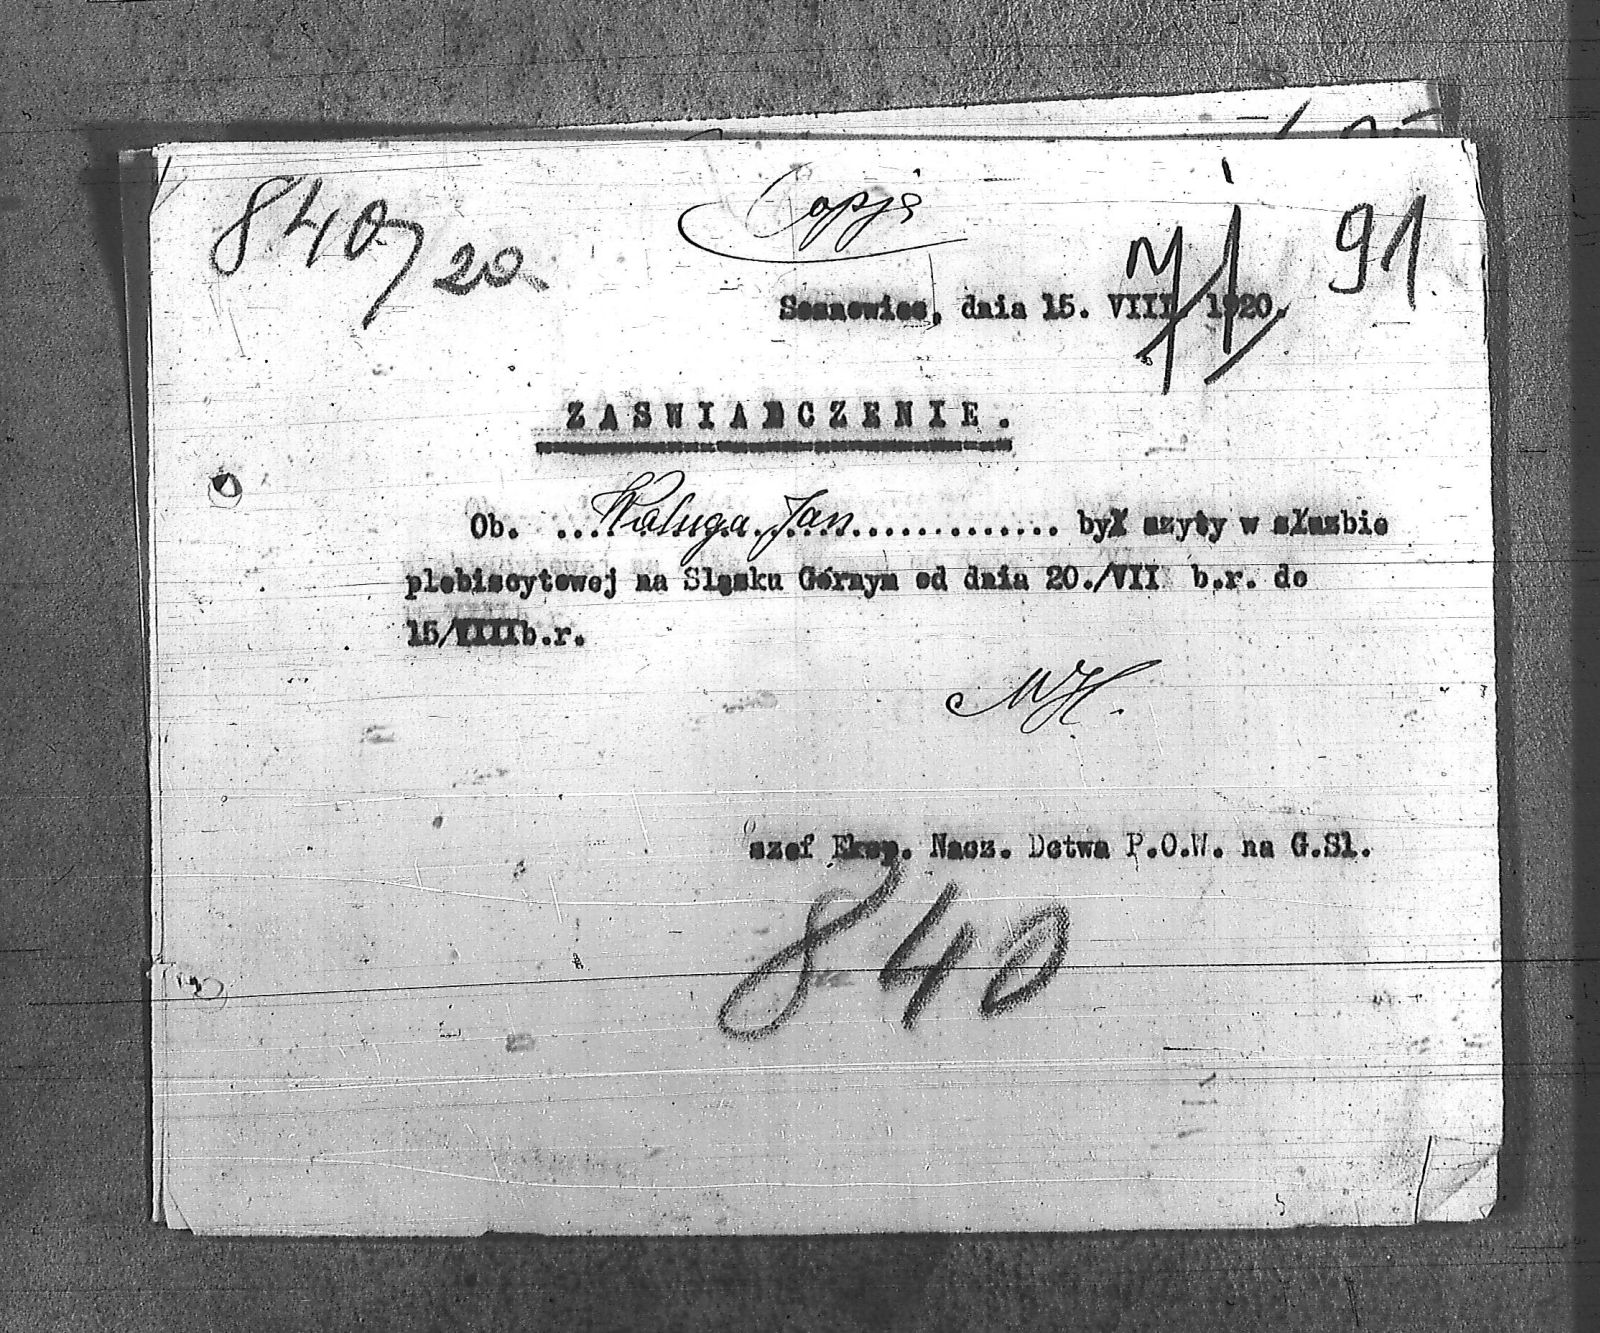 840/20
Copja
91
Sosnowiec, dnia 15. VIII 1920.
ZASWIADCZENIE.
Ob. .... Waluga Jan ............. był uzyty w służbie
plebiscytowej na Sląsku Górnym od dnia 20./VII b.r. do
15/VIII b.r.
szef Eksp. Nacz. Dctwa P.O.W. na G.Sl.
840